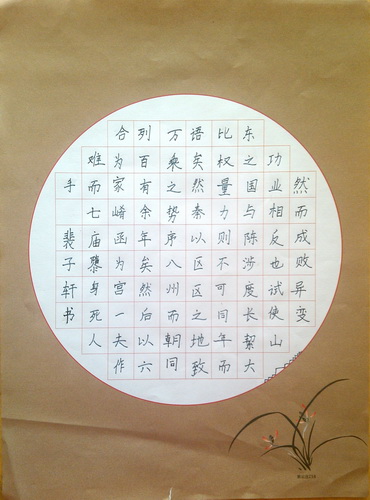 然而成败异变
功业相反也试使山
东之国与陈涉度长絜大
比权量力则不可同年而
语矣然秦以区区之地致
万乘之势序八州而朝同
列百有余年矣然后以六
合为家崤函为宫一夫作
难而七庙隳身死人
手 裴子轩书